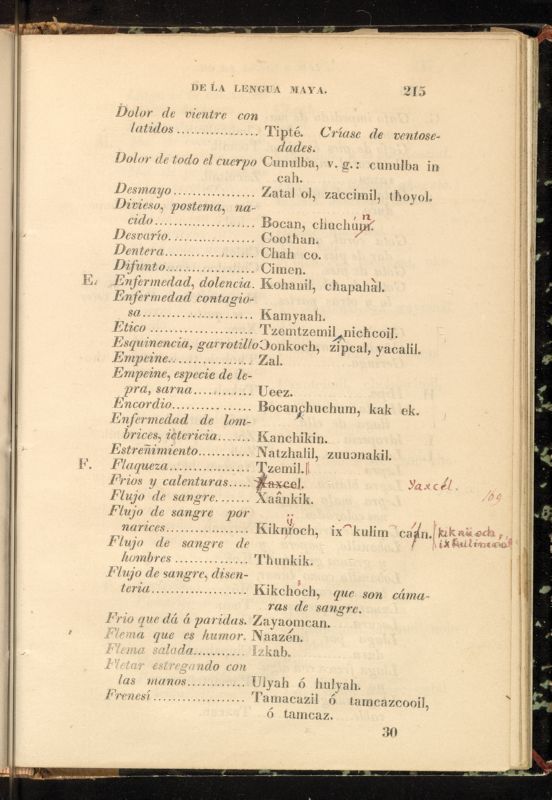 DE LA LENGUA MAYA. 215
Dolor de vientre con
latidos.................. Tipté. Críase de ventose-
dades.
Dolor de todo el cuerpo Cunulba, v. g.: cunulba in
cah.
Desmayo................. Zatal ol, zaccimil, thoyol.
Divieso, postema, na-
cido...................... Bocan, chuchúm. n
Desvarío................. Coothan.
Dentera.................. Chah co.
Difunto................... Cimen.
E. Enfermedad, dolencia. Kohanil, chapahal.
Enfermedad contagio-
sa........................ Kamyaah.
Etico ..................... Tzemtzemil, nichcoil.
Esquinencia, garrotillo Ɔonkoch, zipcal, yacalil.
Empeine.................. Zal.
Empeine, especie de le-
pra, sarna............. Ueez.
Encordio................. Bocanchuchum, kak ek.
Enfermedad de lom-
brices, ictericia....... Kanchikin.
Estreñimiento........... Natzhalil, zuuɔnakil.
F. Flaqueza................. Tzemil.
Frios y calenturas..... Xaxcel. Yaxcél.
Flujo de sangre....... Xaânkik. 109
Flujo de sangre por
narices................. Kiknioch, ix kulim caán. kiknü och,
Flujo de sangre de
hombres ............... Thunkik.
Flujo de sangre, disen-
teria..................... Kikchoch, que son cáma-
ras de sangre.
Frio que dá á paridas. Zayaomcan.
Flema que es humor. Naazén.
Flema salada........... Izkab.
Fletar estregando con
las manos............. Ulyah ó hulyah.
Frenesí .................. Tamacazil ó tamcazcooil,
ó tamcaz.
30